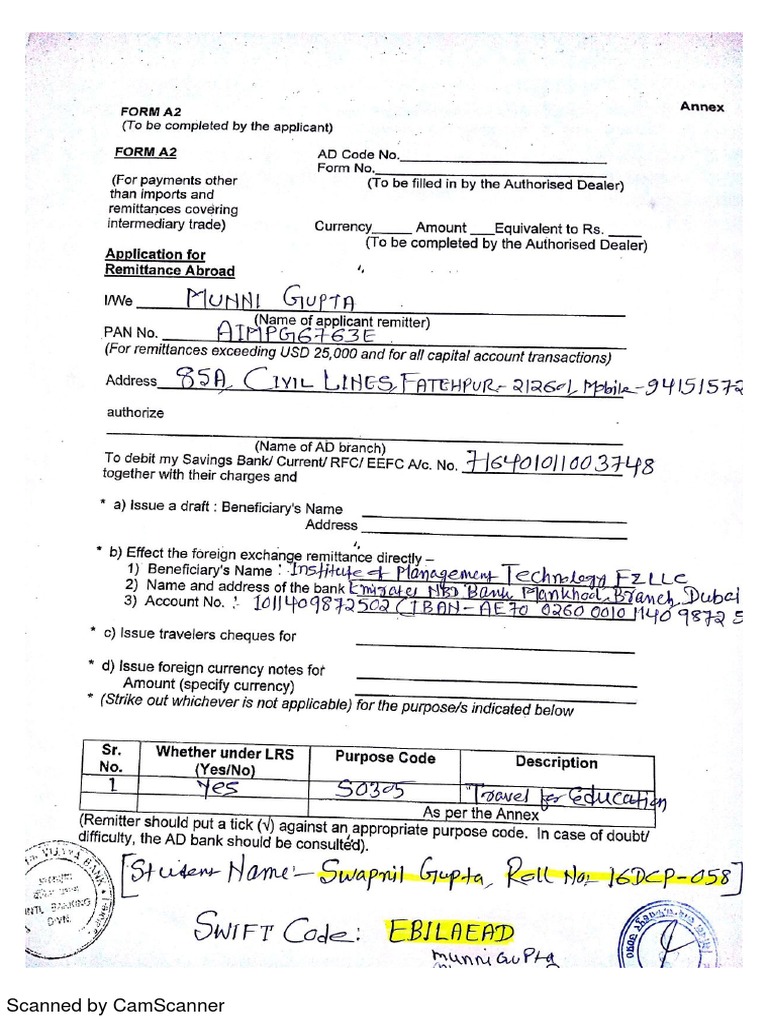 Annex
FORM A2
(To be completed by the applicant)
FORM A2
AD Code No.
Form No.
(To be filled in by the Authorised Dealer)
(For payments other
than imports and
remittances covering
intermediary trade)
Currency_____ Amount ___Equivalent to Rs. ____
(To be completed by the Authorised Dealer)
Application for
Remittance Abroad
I/We MUNNI GUPTA
(Name of applicant remitter)
PAN No. AIMPG6763E
(For remittances exceeding USD 25,000 and for all capital account transactions)
Address 85A, CIVIL LINES, FATEHPUR - 212601, Mobile - 94151572
authorize
(Name of AD branch)
To debit my Savings Bank/ Current/ RFC/ EEFC A/c. No. 716401011003748
together with their charges and
* a) Issue a draft : Beneficiary's Name
Address
* b) Effect the foreign exchange remittance directly –
1) Beneficiary's Name : Institute of Management Technology FZLLC
2) Name and address of the bank Emirates NBD Bank, Mankhool, Branch, Dubai
3) Account No. : 1011409872502 (IBAN - AE70 0260 0010 1140 9872 5
* c) Issue travelers cheques for
* d) Issue foreign currency notes for
Amount (specify currency)
* (Strike out whichever is not applicable) for the purpose/s indicated below
Sr. No. Whether under LRS (Yes/No) Purpose Code Description
1 Yes S0305 "Travel for Education
As per the Annex
(Remitter should put a tick (√) against an appropriate purpose code. In case of doubt/
difficulty, the AD bank should be consulted).
[Student Name - Swapnil Gupta, Roll No: - 16DCP-058]
VIJAYA BANK
INTL BANKING
DIVN.
SWIFT Code: EBILAEAD
Munni Gupta
Scanned by CamScanner